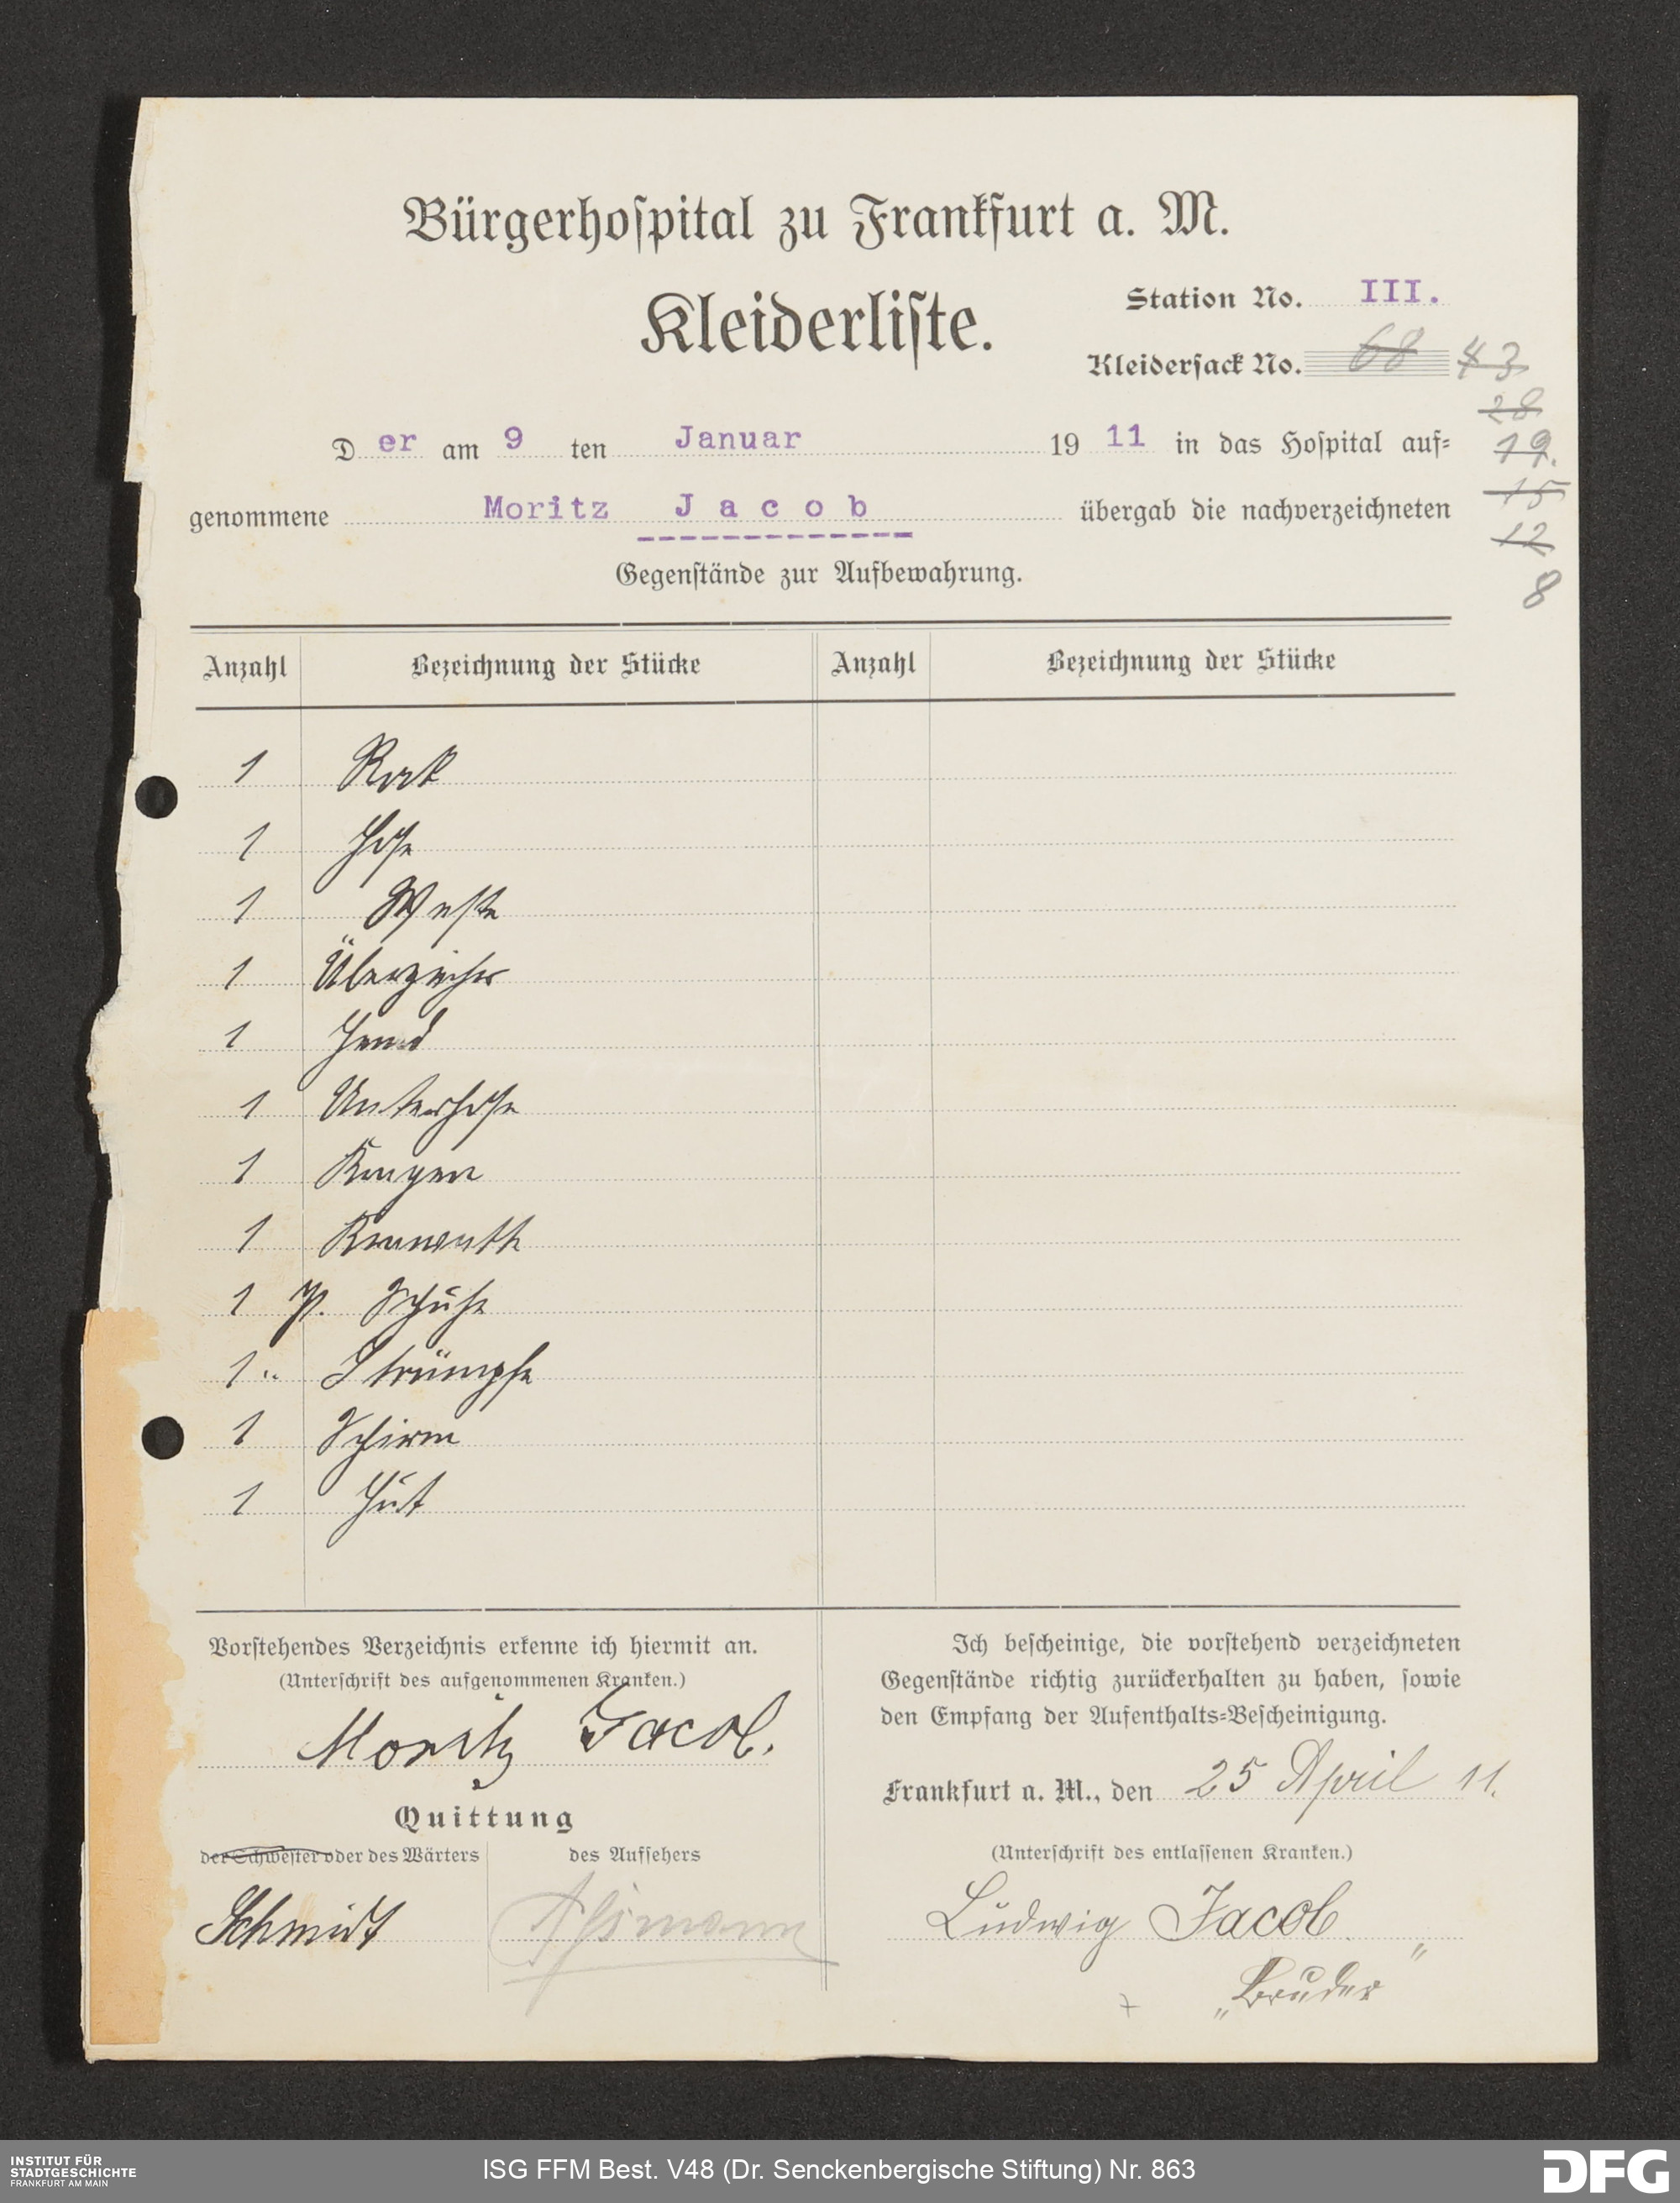 Bürgerhoſpital zu Frankfurt a. M.
Kleiderliſte.
Station No. III.
Kleiderſack No. 68 43
28
19.
15
12
8
D er am 9 ten Januar 19 11 in das Hoſpital auf=
genommene Moritz J a c o b übergab die nachverzeichneten
Gegenſtände zur Aufbewahrung.
Anzahl Bezeichnung der Stücke Anzahl Bezeichnung der Stücke
1 Rock
1 Hose
1 Weste
1 Überzieher
1 Hemd
1 Unterhose
1 Kragen
1 Krawatte
1 P. Schuhe
1 " Strümpfe
1 Schirm
1 Hut
Vorſtehendes Verzeichnis erkenne ich hiermit an.
(Unterſchrift des aufgenommenen Kranken.)
Moritz Jacob.
Quittung
der Schweſter oder des Wärters
des Aufſehers
Schmidt
Ich beſcheinige, die vorſtehend verzeichneten
Gegenſtände richtig zurückerhalten zu haben, ſowie
den Empfang der Aufenthalts=Beſcheinigung.
Frankfurt a. M., den 25 April 11.
(Unterſchrift des entlaſſenen Kranken.)
Ludwig Jacob.
„Bruder"
INSTITUT FÜR
STADTGESCHICHTE
FRANKFURT AM MAIN
ISG FFM Best. V48 (Dr. Senckenbergische Stiftung) Nr. 863
DFG